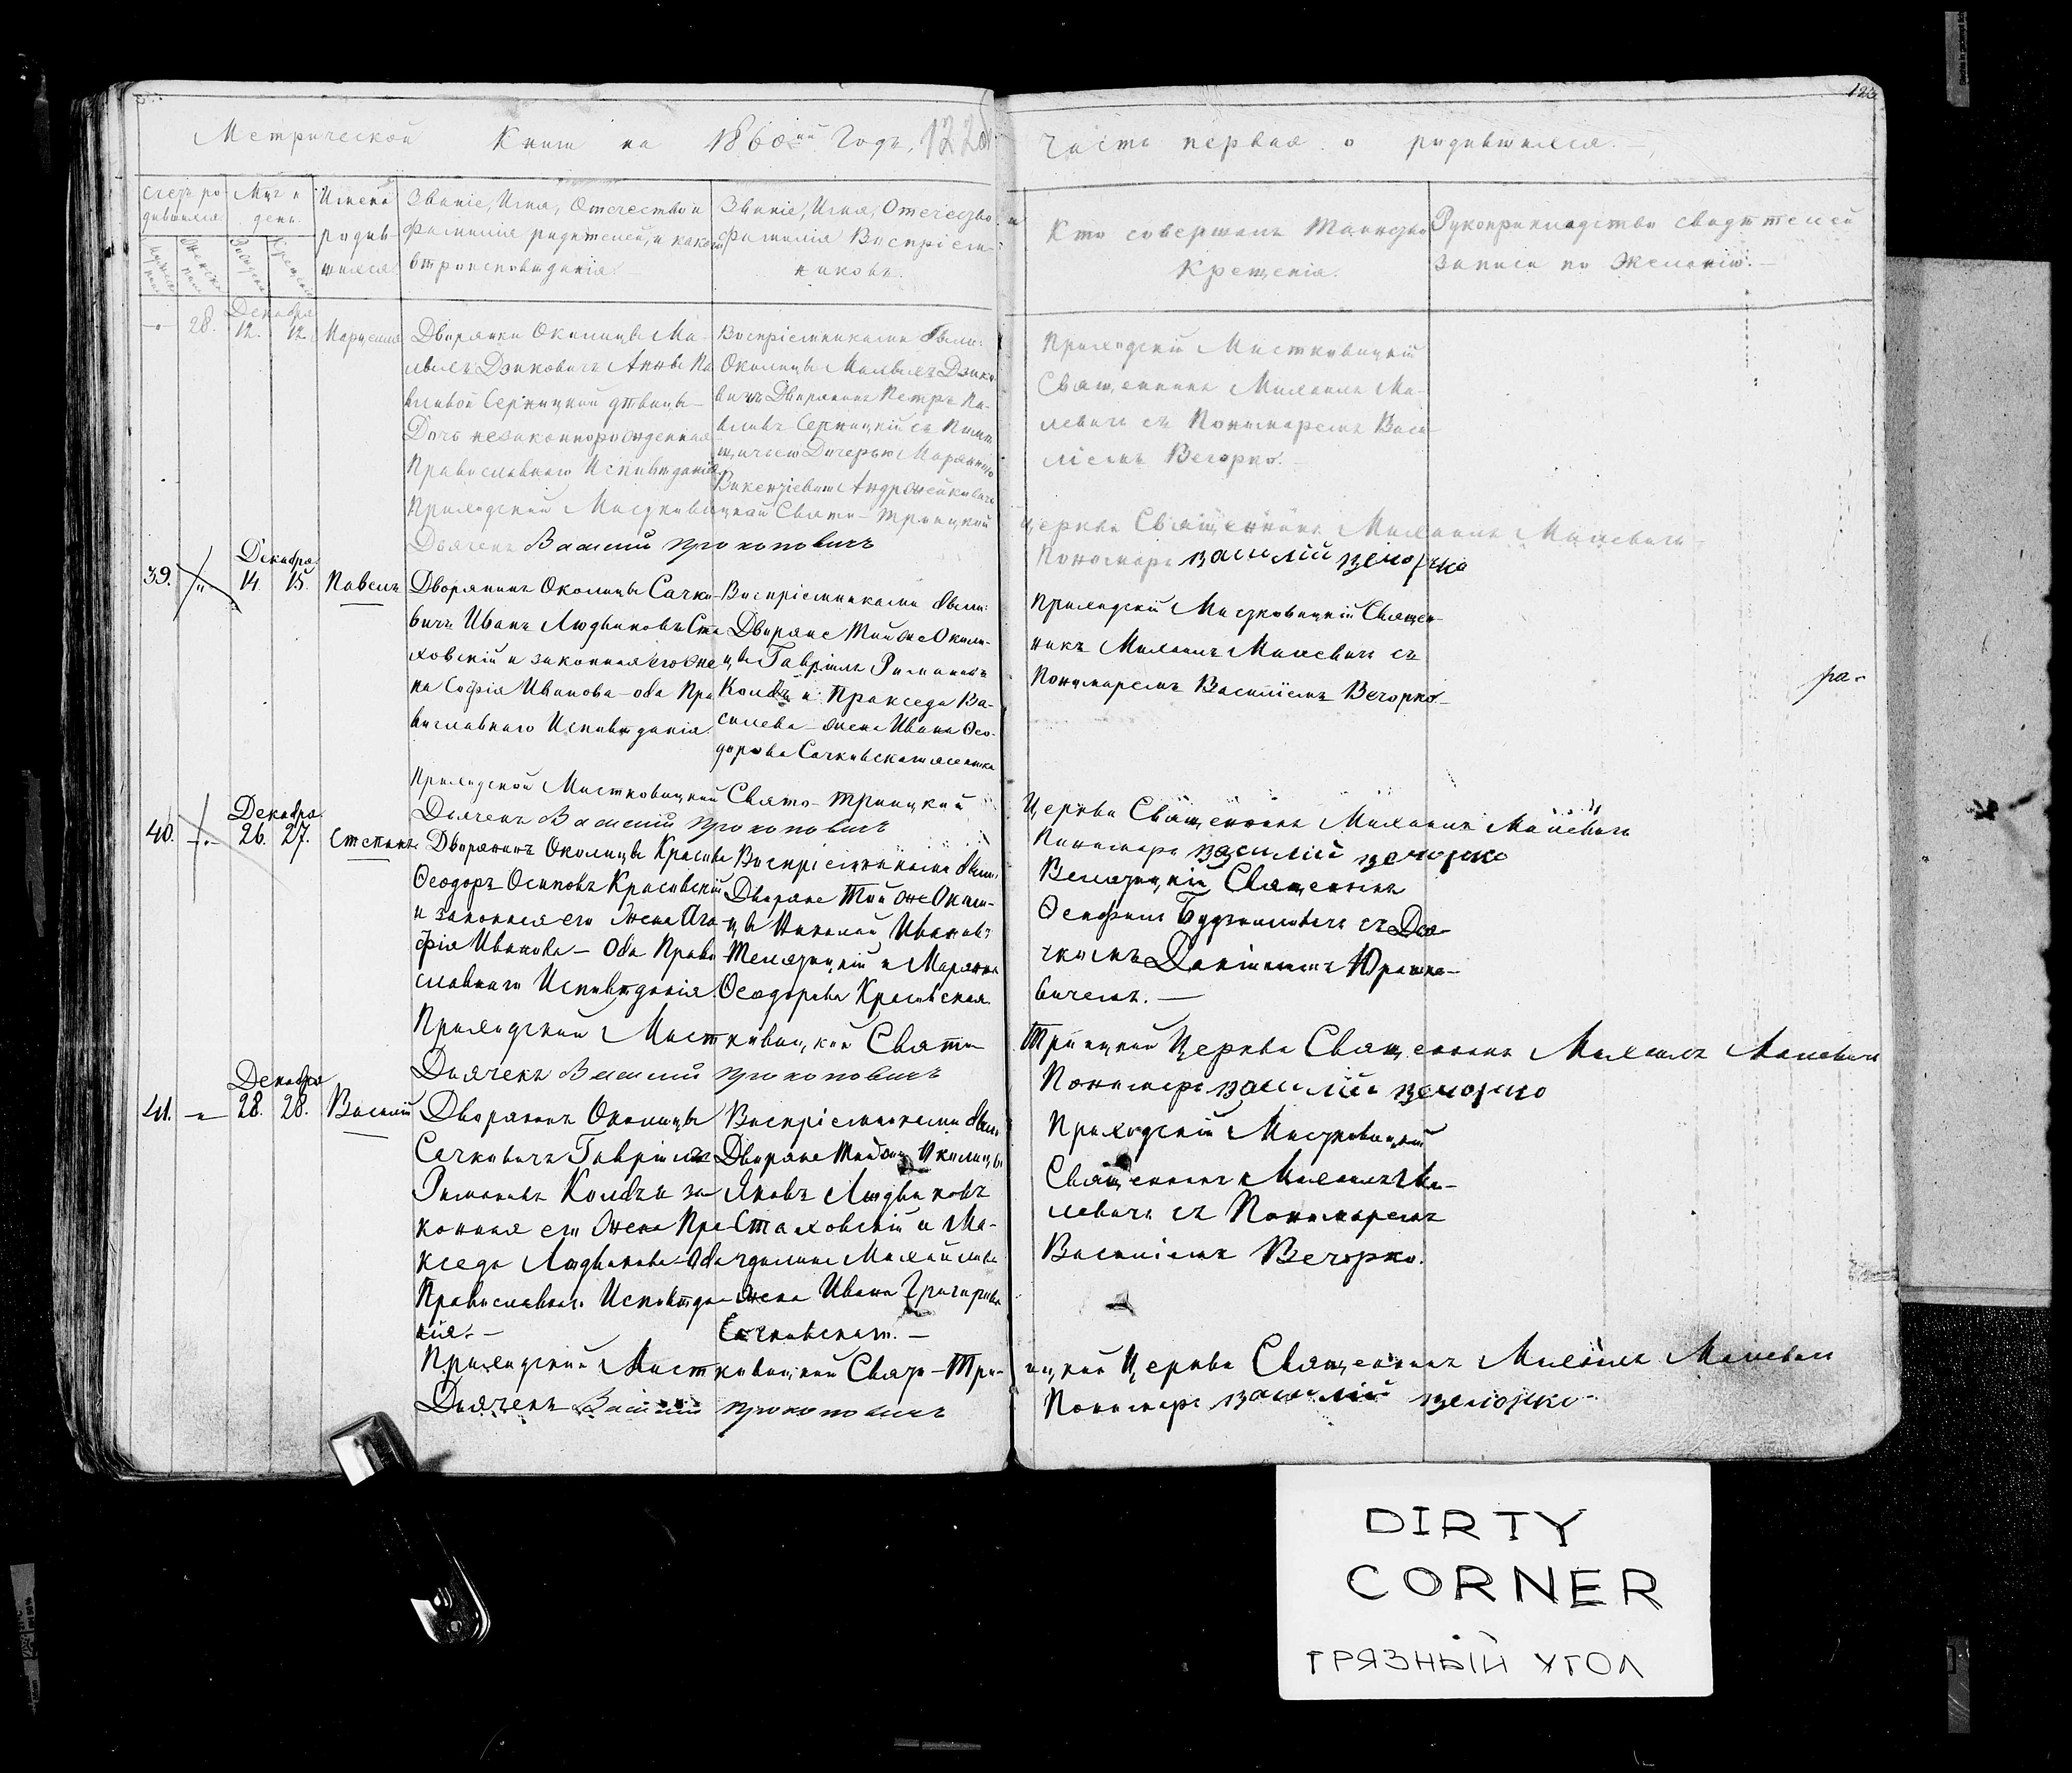 Метрической Книги на 1860ый Годъ, 122об.
Часть первая о родившихся.
123
Счетъ родившихся
Мужеска пола
Женска пола
Мѣс. и день
Рожденія
Крещенія
Имена
родив
шихся
Званіе, Имя, Отечество и
Фамилія родителей, и какого
вѣроисповѣданія
Званіе, Имя, Отечество и
Фамилія Воспріем-
никовъ.
Кто совершалъ Таинство
Крещенія.
Рукоприкладство свидѣтелей
записи по желанію.
28.
Декабря
12. 12.
Дворянки Околицы Ма-
Анны Па
вловой Серницкой дѣвицы
Дочь незаконнорожденная
Православнаго Исповѣданія
Воспріемниками были:
Околицы
Дворянинъ Петръ Па-
вловъ Серницкій съ
Дочерью Маріанною
Викентіевою
Приходскій Мистковицкій
Священникъ Михаилъ Ма-
левичъ съ Пономаремъ Васи-
ліемъ Вечорко.
Приходской Мистковицкой Свято-Троицкой
Церкви Священникъ Михаилъ Малевичъ
Дьячекъ Василій Прокоповичъ
Пономарь Василій Вечорко
39.
Декабря
14 15.
Павелъ
Дворянинъ Околицы Сачко-
вичъ Иванъ Людвиковъ Ста
ховскій и законная его же
на Софія Иванова - оба Пра
вославнаго Исповѣданія.
Воспріемниками были:
Дворяне Той же Околи-
цы Гавріилъ Романовъ
Колбъ и Пракседа Ва-
сильева - жена Ивана Ѳео-
дорова Сачковскаго
Приходскій Мистковицкій Священ-
никъ Михаилъ Малевичъ съ
Пономаремъ Василіемъ Вечорко
ра-
Приходской Мистковицкой Свято-Троицкой
Церкви Священникъ Михаилъ Малевичъ
Дьячекъ Василій Прокоповичъ
Пономарь Василій Вечорко
40.
Декабря
26. 27.
Степанъ
Дворянинъ Околицы Красова
Ѳеодоръ Осиповъ Красовскій
и законная его жена Ага
фія Иванова - Оба Право
славнаго Исповѣданія
Воспріемниками были:
Дворяне Той же Околи-
цы Николай Ивановъ
и Маріанна
Ѳеодорова Красовская.
Священникъ
съ Дья-
чкомъ
вичемъ. -
Приходской Мистковицкой Свято
Троицкой Церкви Священникъ Михаилъ Малевичъ
Дьячекъ Василій Прокоповичъ
Пономарь Василій Вечорко
41.
Декабря
28. 28.
Василій
Дворянинъ Околицы
Сачковичъ Гавріилъ
Романовъ Колбъ и за
конная его жена Пра
кседа Людвикова - Оба
Православнаго Исповѣда
нія. -
Воспріемниками были
Дворяне Той же Околицы
Яковъ Людвиковъ
Стаховскій и Ма-
гдалина Михайлова
жена Ивана Григорьева
Сачковскаго. -
Приходскій Мистковицкій
Священникъ Михаилъ Ма-
левичъ съ Пономаремъ
Василіемъ Вечорко.
Приходской Мистковицкой Свято-Тро-
ицкой Церкви Священникъ Михаилъ Малевичъ
Дьячекъ Василій Прокоповичъ
Пономарь Василій Вечорко
DIRTY
CORNER
ГРЯЗНЫЙ УГОЛ